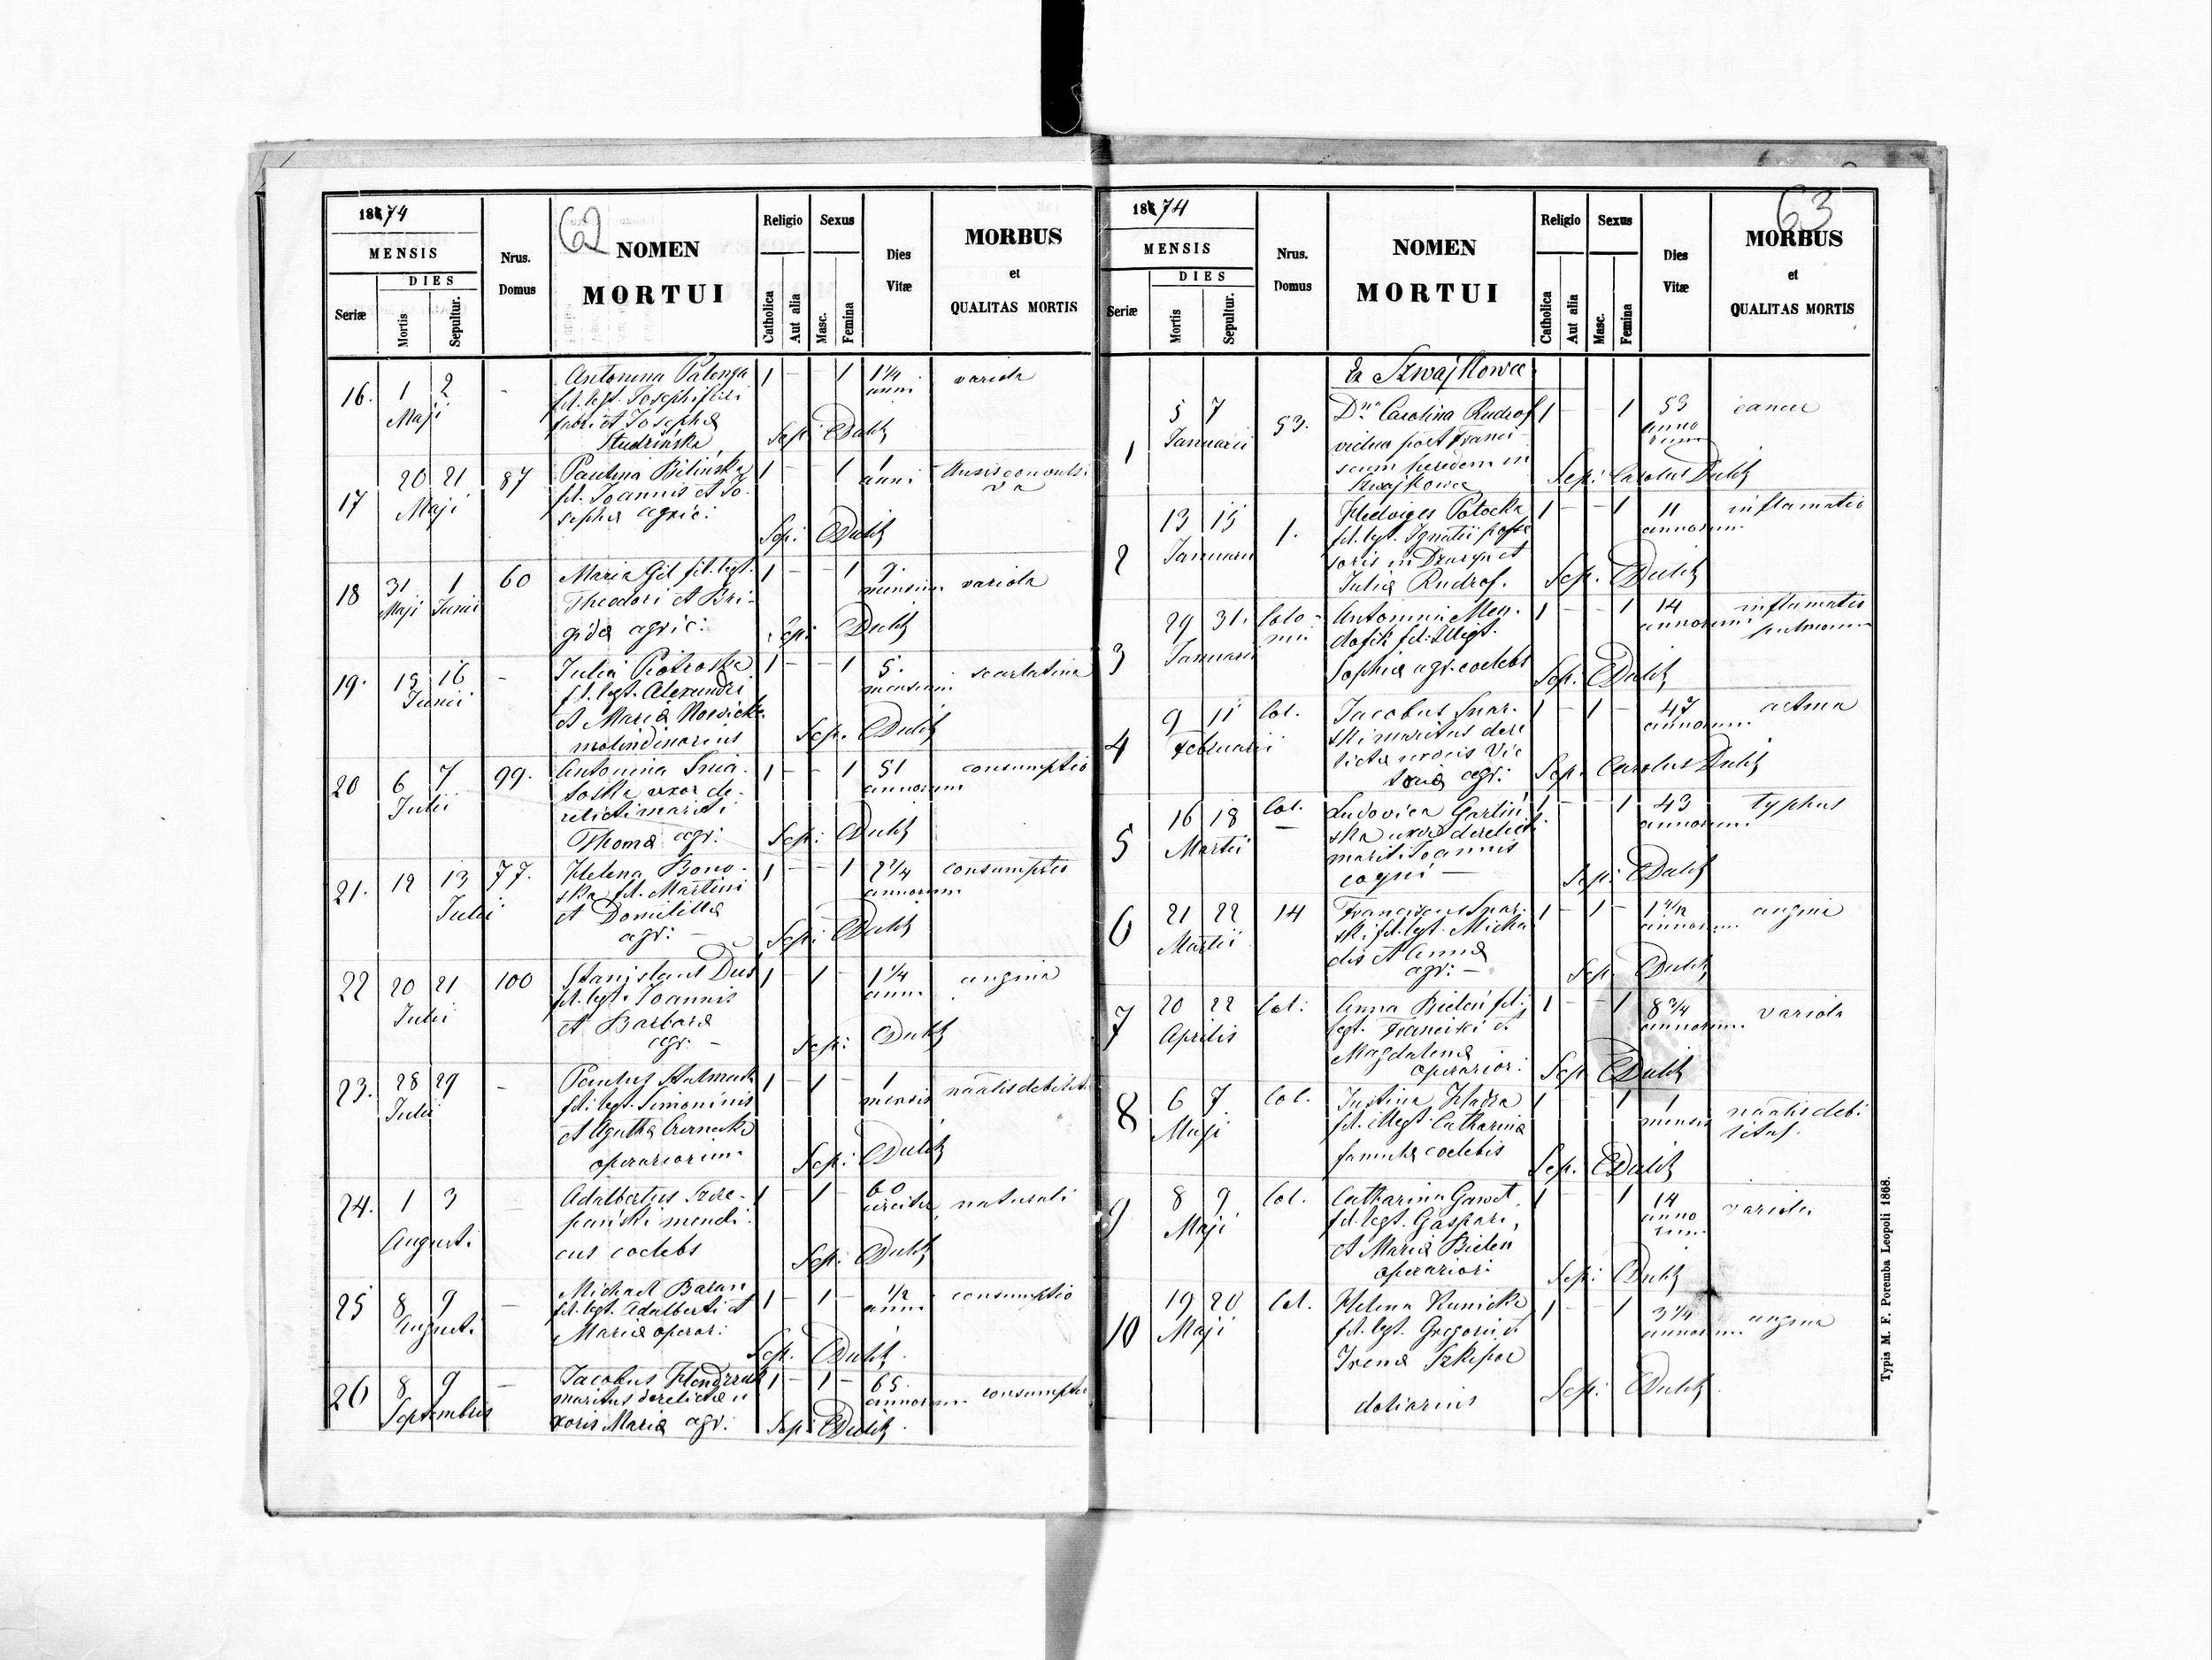 62
1874
MENSIS
DIES
Seriæ
Mortis
Sepultur.
Nrus.
Domus
NOMEN
MORTUI
Religio
Catholica
Aut alia
Sexus
Masc.
Femina
Dies
Vitæ
MORBUS
et
QUALITAS MORTIS
16. 1 2 - Antonina Palenga 1 - - 1 1 1/4 variola
Maji fil. legt. Josephi anni
fabri et Josephæ
Studzińska Sep: CDulik
17 20 21 87 Paulina Bilińska 1 - 1 1 tussis convulsi
Maji fil. Joannis et Jo- anni va
sephæ agric:
Sep: CDulik
18 31 1 60 Maria Gil fil. legt. 1 - - 1 9. variola
Maji Junii Theodori et Bri- mensium
gidæ agric: Sep: CDulik
19. 15 16 - Julia Piotroska 1 - - 1 5. scarlatina
Junii fil. legt. Alexandri mensium
et Mariæ Nowicka
molindinarius Sep. CDulik
20 6 7 99. Antonina 1 - - 1 51 consumptio
Julii uxor de- annorum
relicti mariti
Thomæ agr: Sep: CDulik
21. 12 13 77. Helena Bono- 1 - - 1 2 2/4 consumptio
Julii ska fil. Martini annorum
et Domitillæ
agr: - Sep: CDulik
22 20 21 100 Stanislaus Dus 1 - 1 - 1 1/4 angina
Julii fil. legt. Joannis anni
et Barbaræ
agr. - Sep: CDulik
23. 28 29 - Paulus 1 - 1 - 1 natalis debilit.
Julii fil. legt. Simeonis mensis
et Agathæ
operariorum. Sep: CDulik
24. 1 3 - Adalbertus Szcze- 1 - 1 - 60 naturali
Augusti pański mendi- circiter
cus coelebs Sep: CDulik
25 8 9 - Michael Baran 1 - 1 - 1/2 consumptio
Augusti fil. legt. Adalberti et anni
Mariæ operar: Sep. CDulik
26 8 9 - Jacobus 1 - 1 - 65. consumptio
Septembris maritus derelictæ u annorum
xoris Mariæ agr: Sep: CDulik
63
1874
MENSIS
DIES
Seriæ
Mortis
Sepultur.
Nrus.
Domus
NOMEN
MORTUI
Religio
Catholica
Aut alia
Sexus
Masc.
Femina
Dies
Vitæ
MORBUS
et
QUALITAS MORTIS
Ex Szwajkowce
1 5 7 53. Dna Carolina Rudrof 1 - - 1 53 cancer
Januarii vidua post Franci- anno
scum heredem in rum
Szwajkowce Sep: Carolus Dulik
2 13 15 1. Hedviges Potocka 1 - - 1 11 inflamatio
Januarii fil. legt. Ignatii posse annorum
soris in Dzuryn et
Juliæ Rudrof. Sep. CDulik
3 29 31. Colo- Antonina 1 - - 1 14 inflamatio
Januarii nii fil. illegt. annorum pulmonum
Sophiæ agr. coelebs Sep. CDulik
4 9 11 Col. Jacobus Snar- 1 - 1 - 47 astma
Februarii ski maritus dere annorum.
lictæ uxoris Vic
toriæ agr: Sep. Carolus Dulik
5 16 18 Col. Ludovica Garliń 1 - - 1 43 typhus
Martii ska uxor derelicti annorum.
mariti Joannis
coqui - Sep: CDulik
6 21 22 14 Franciscus Snar- 1 - 1 - angina
Martii ski fil. legt. Micha annorum
elis et Annæ
agr: - Sep. CDulik
7 20 22 Col: Anna Bieleń fil. 1 - - 1 8 3/4 variola
Aprilis legt. Francisci et annorum.
Magdalenæ
operarior: Sep CDulik
8 6 7 Col. Justina 1 - - 1 1 natalis debi
Maji fil. illegt. Catharinæ mensis litas.
famula coelebis Sep. CDulik
9 8 9 Col. Catharina Gawet 1 - - 1 14 variola
Maji fil. legt. Gaspari, anno
et Mariæ Bielen rum
operarior: Sep: CDulik
10 19 20 Col. Helena Kunicka 1 - - 1 3 1/4 angina
Maji fil. legt. Gregorii et annorum
Irenæ
doliarius Sep: CDulik
Typis M. F. Poremba Leopoli 1868.